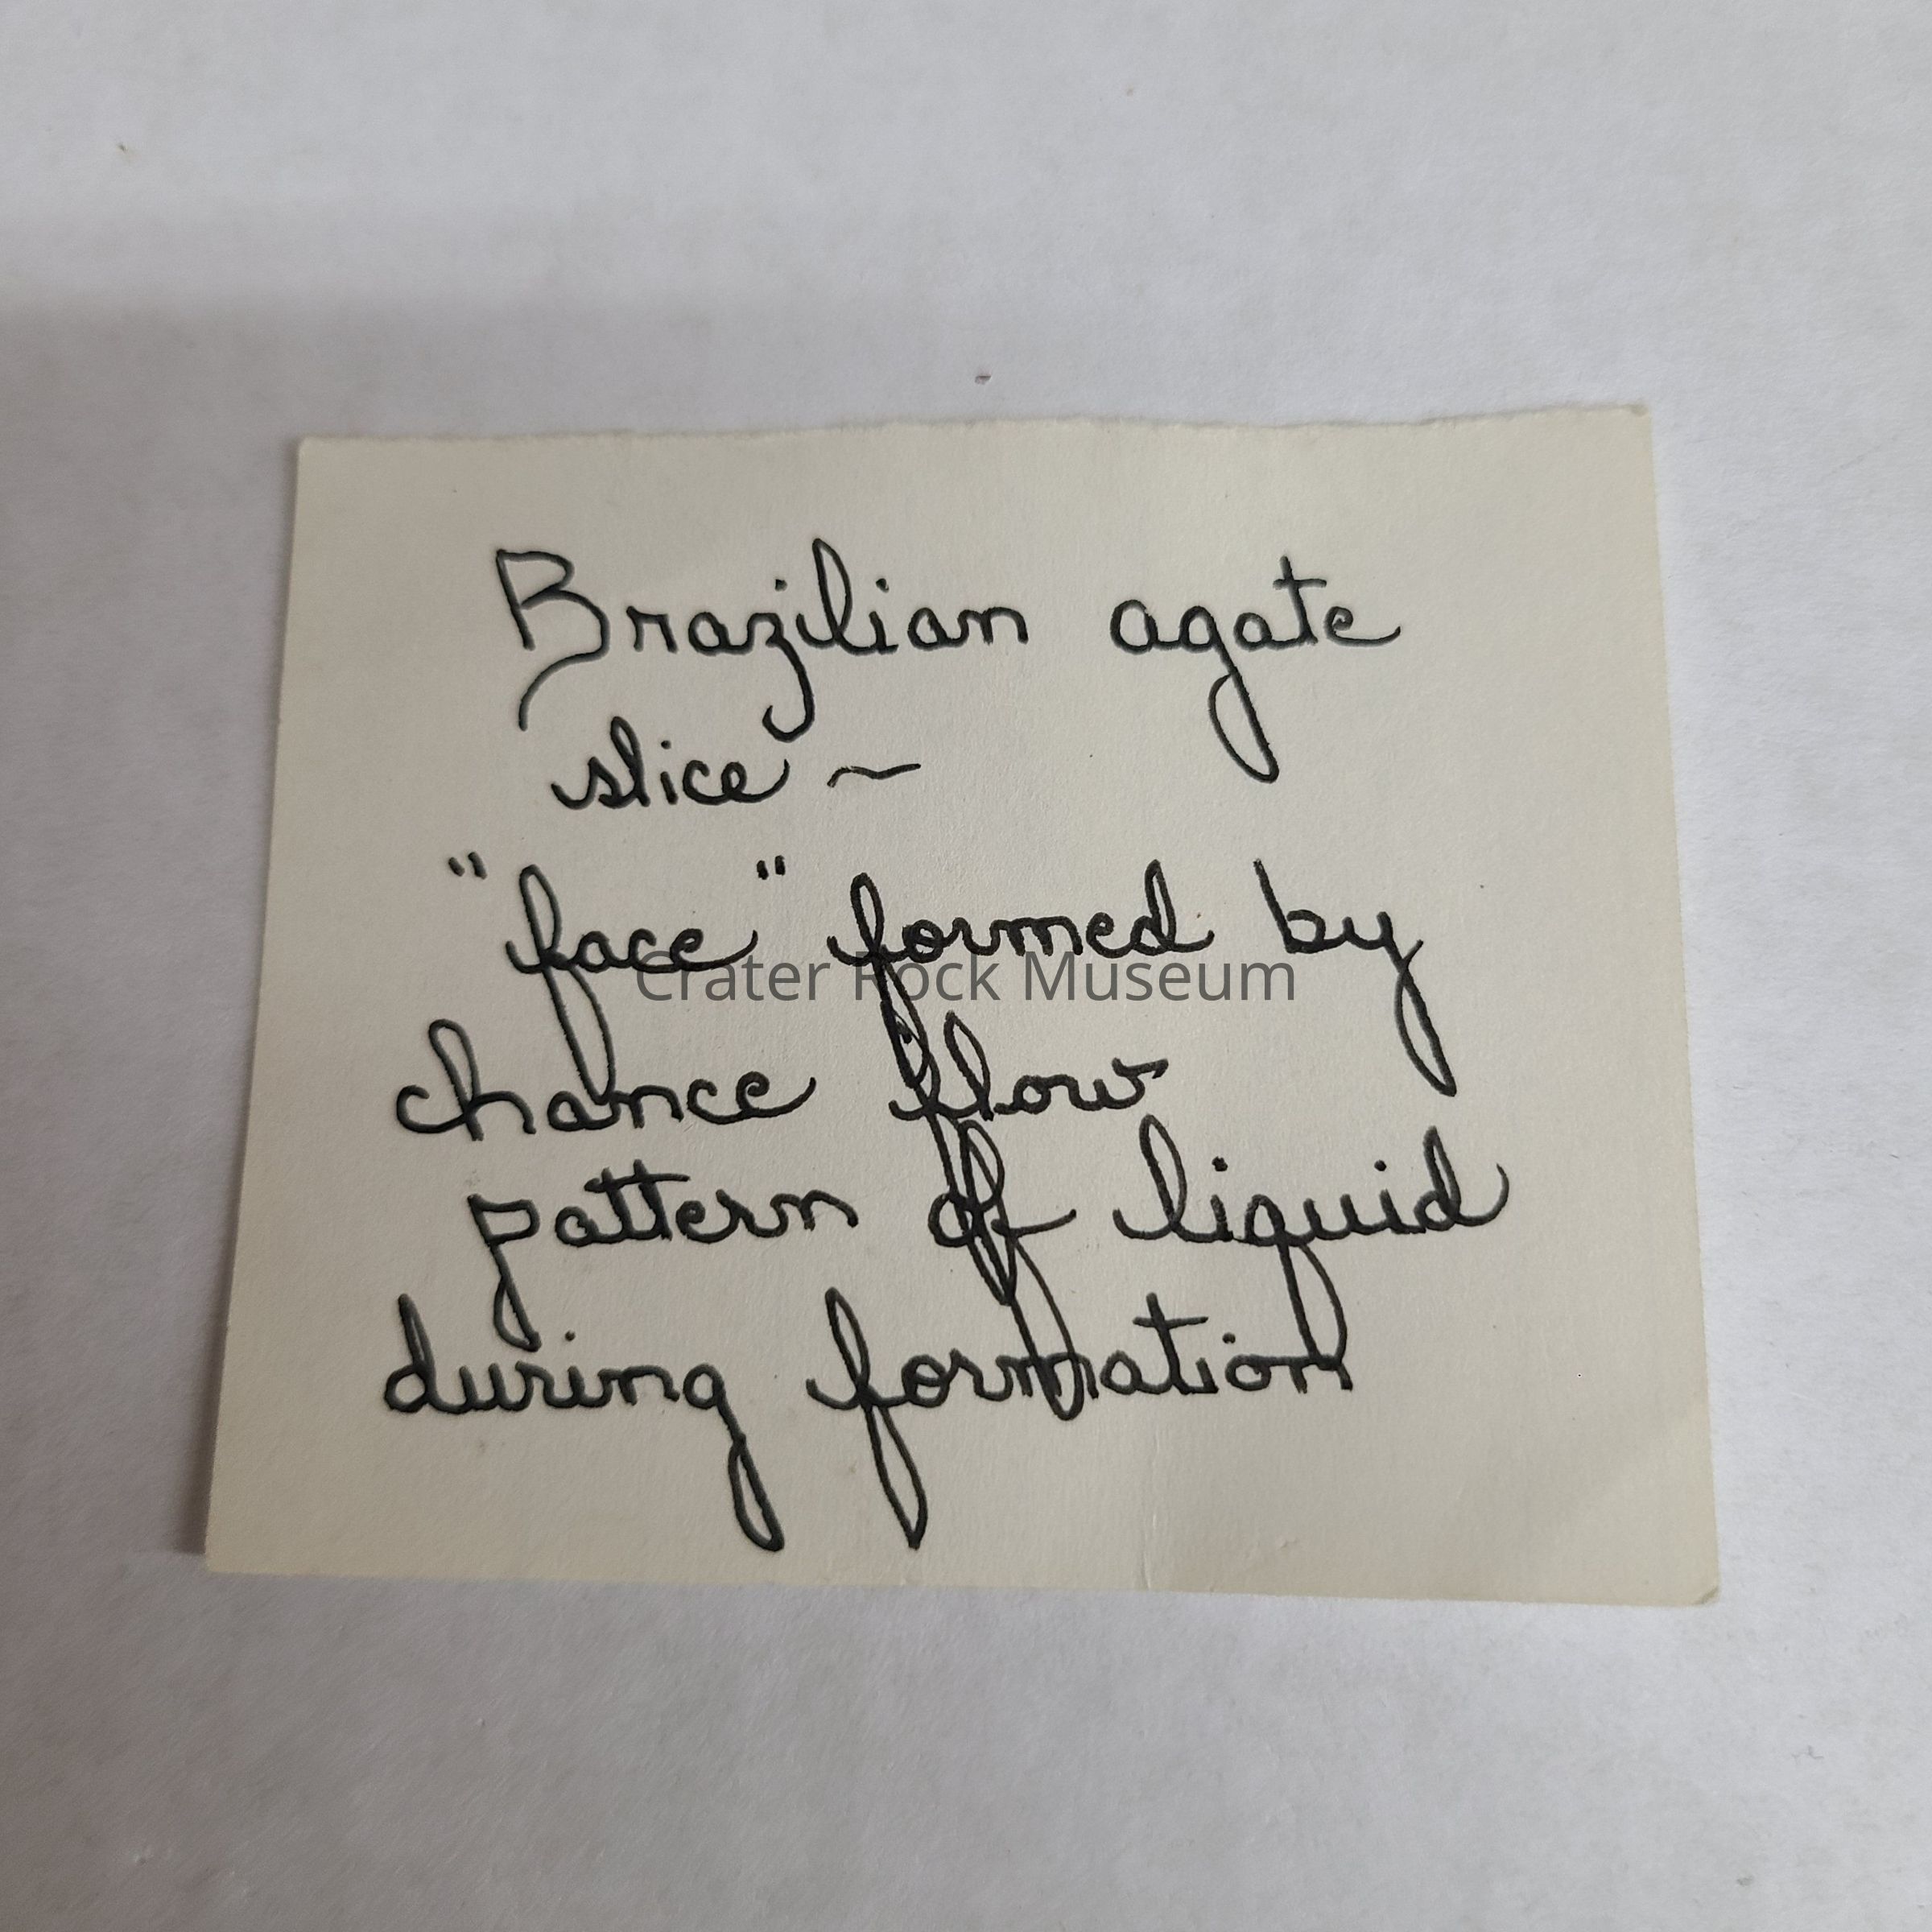 Brazilian agate
slice ~
"face" formed by
Crater Rock Museum
chance flow
pattern of liquid
during formation